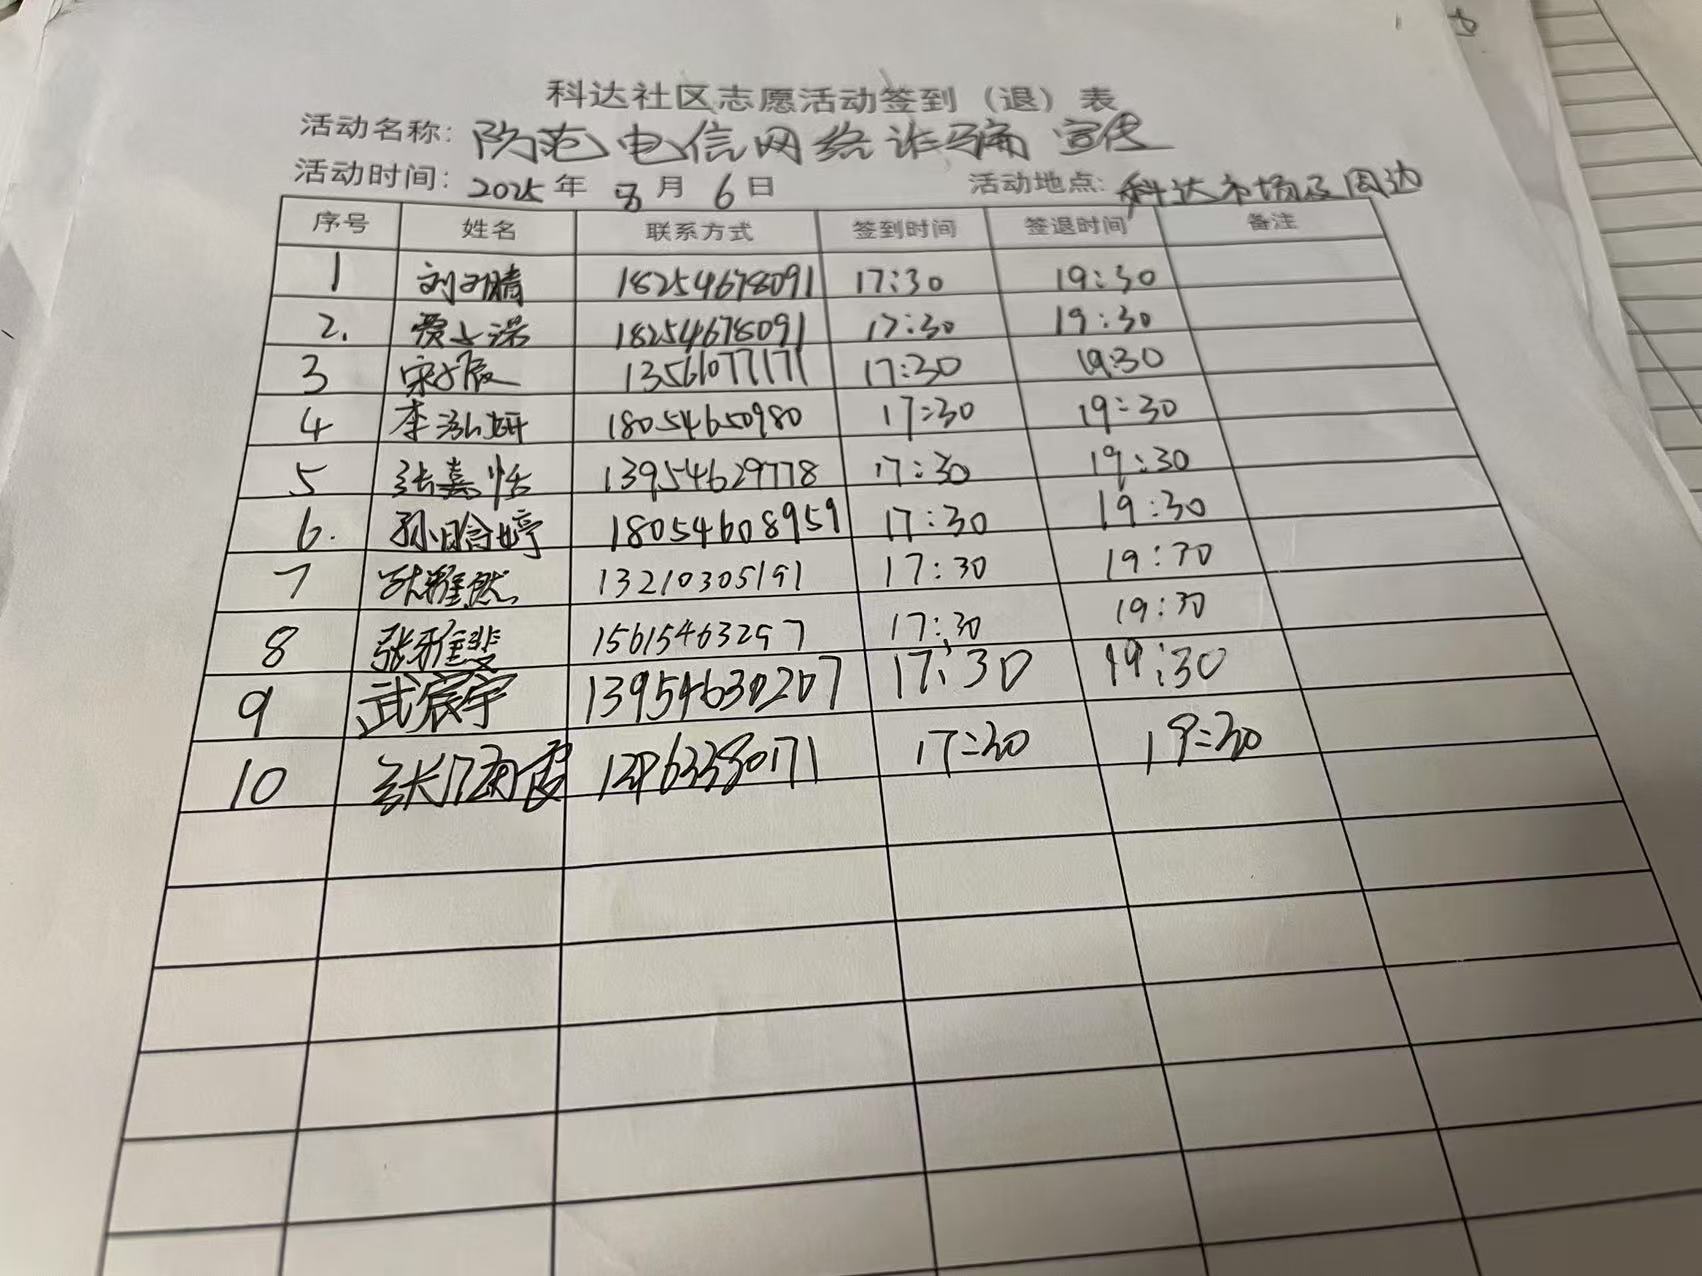 科达社区志愿活动签到（退）表
活动名称：防范电信网络诈骗宣传
活动时间：2025年 8月 6日 活动地点：科达市场及周边
序号 姓名 联系方式 签到时间 签退时间 备注
1 刘子晴 18254678091 17:30 19:30
2. 18254678091 17:30 19:30
3 13561077171 17:30 19:30
4 李泓妍 18054650980 17:30 19:30
5 张嘉恬 13954629778 17:30 19:30
6. 孙晗婷 18054608959 17:30 19:30
7 13210305191 17:30 19:30
8 张雅斐 15615463297 17:30 19:30
9 武宸宇 13954630207 17:30 19:30
10 17:30 19:30